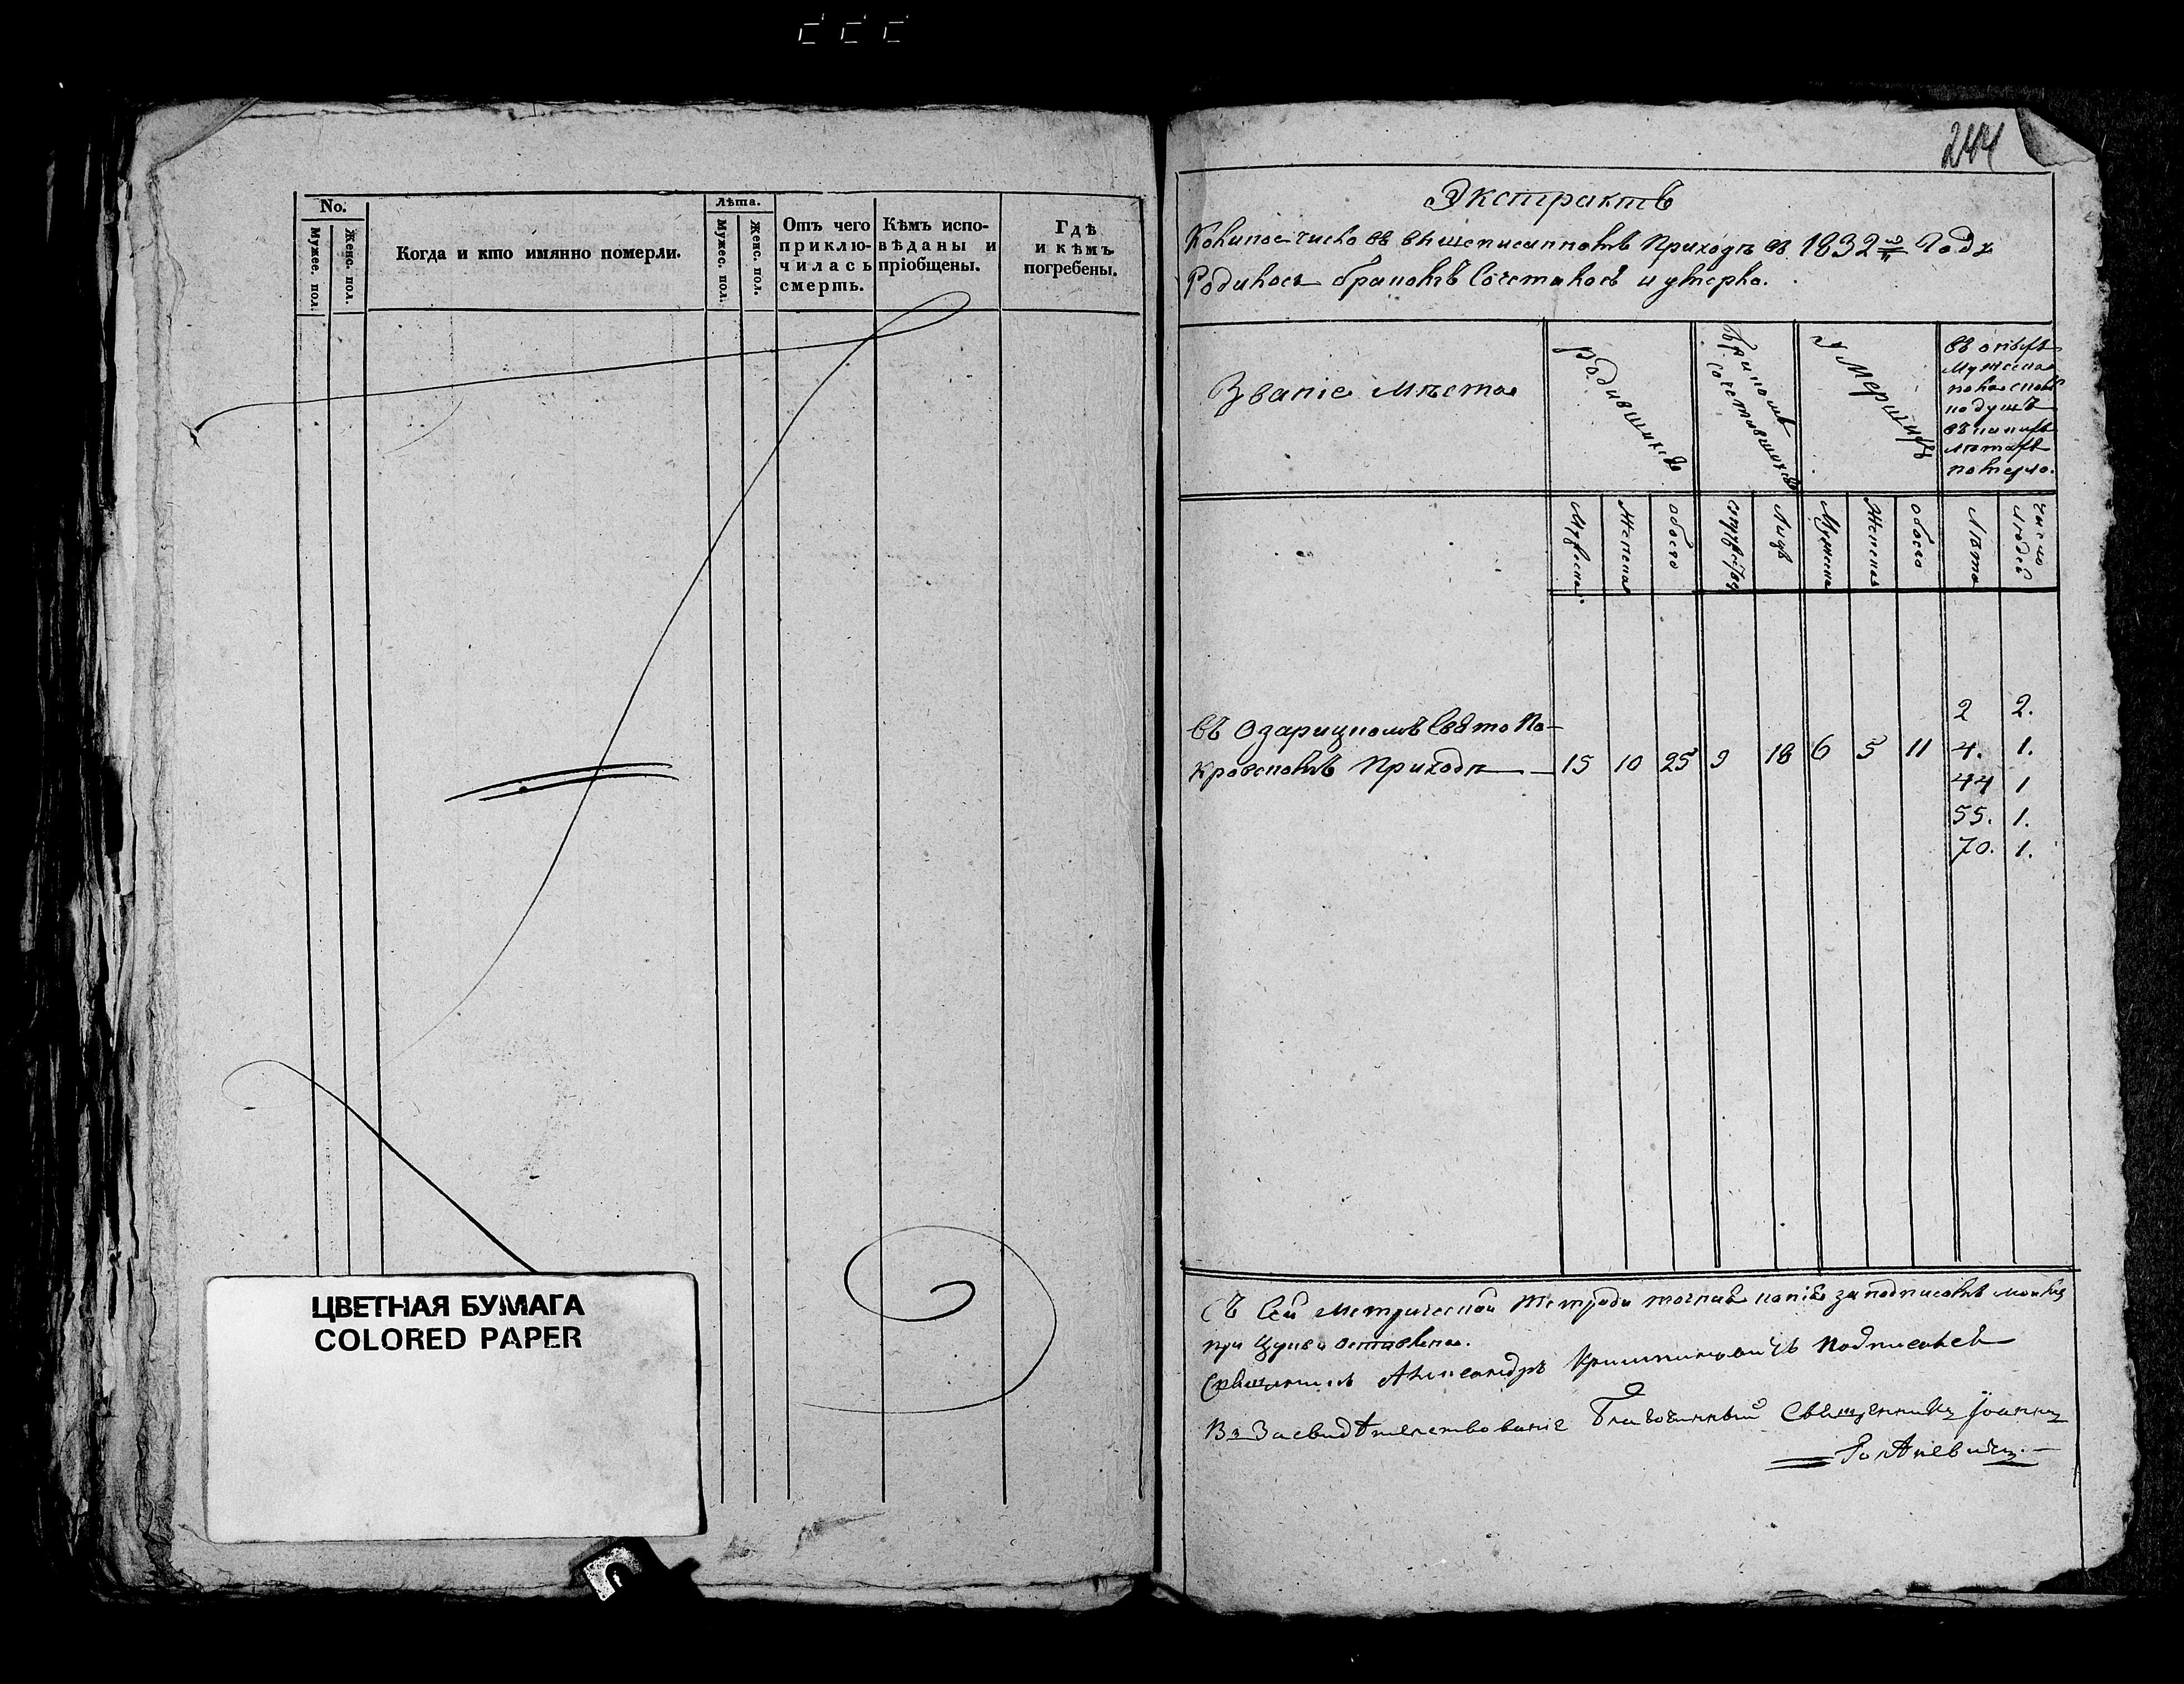 No.
Мужес. пол.
Женс. пол.
Когда и кто имянно померли.
Лѣта.
Мужес. пол.
Женс. пол.
Отъ чего
приклю-
чилась
смерть.
Кѣмъ испо-
вѣданы и
пріобщены.
Гдѣ
и кѣмъ
погребены.
ЦВЕТНАЯ БУМАГА
COLORED PAPER
244
Экстрактъ
Коликое число въ вышеписанномъ Приходѣ въ 1832 Году
Родилось бракомъ Сочеталось и умерло.
Званіе мѣста
родившихся
Бракомъ
сочетавшихся
умершихъ
мужеска
по душѣ
лѣтахъ
померло.
Мужеска
Женска
обоего
Лицъ
Мужеска
Женска
обоего
Лѣта
число
людей
Въ Озарицкомъ Свято По-
кровскомъ Приходѣ 15 10 25 9 18 6 5 11
2 2.
4. 1.
44 1
55. 1.
70. 1.
Съ Сей метрической тетради точная копія за подписомъ моимъ
при Церкви оставлена.
Священникъ Александръ подписался
Въ Засвидѣтельствованіе Благочинный Священникъ Іоаннъ